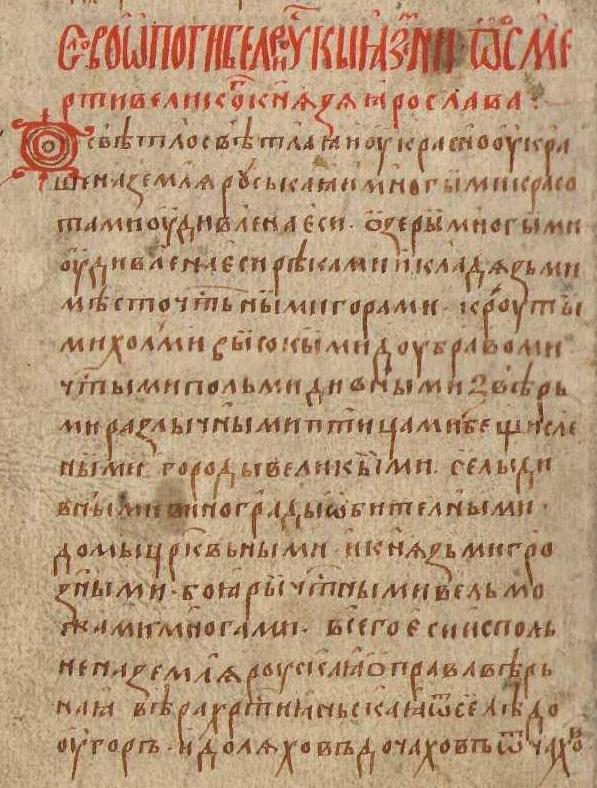 Слово ѡ погибели Рускыꙗ земли и ѡ см҃е
рти великог кнѧзѧ ꙗрослава:
Ѡ свѣтло свѣтлаꙗ и оукрасно оукра
шена землѧ роуськаꙗ и многыми красо
тами оудивлена еси · ѡзеры многыми
оудивлена еси рѣками и кладѧзьми
мѣсточтьными горами · кроуты
ми холми высокыми доубравоми
чтыми польми дивными звѣрь
ми разлычными птицами бещисле
ными городы великыми селы ди
вными винограды ѡбителными
домы црквьными · и кнѧзьми гро
зными · боꙗры чтными вельмо
жами многами · всего еси испольʼ
нена землѧ роускаꙗ ѡ прававѣрь
наꙗ вѣра хртиꙗньскаꙗ ѿселѣ до
оугоръ · и до лѧховъ до чаховъ ѿ чахов